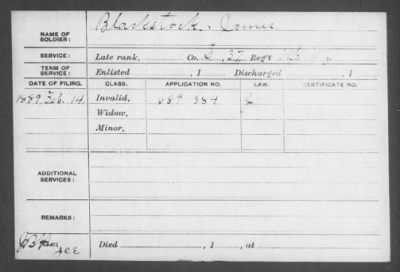 NAME OF SOLDIER: Blackstock, James
SERVICE: Late rank, Co. Reg't
TERM OF SERVICE: Enlisted , 1 Discharged , 1
DATE OF FILING. CLASS. APPLICATION NO. LAW. CERTIFICATE NO.
1889, Feb. 14 Invalid, 689 584
Widow,
Minor,
ADDITIONAL SERVICES:
REMARKS:
Died , 1 , at